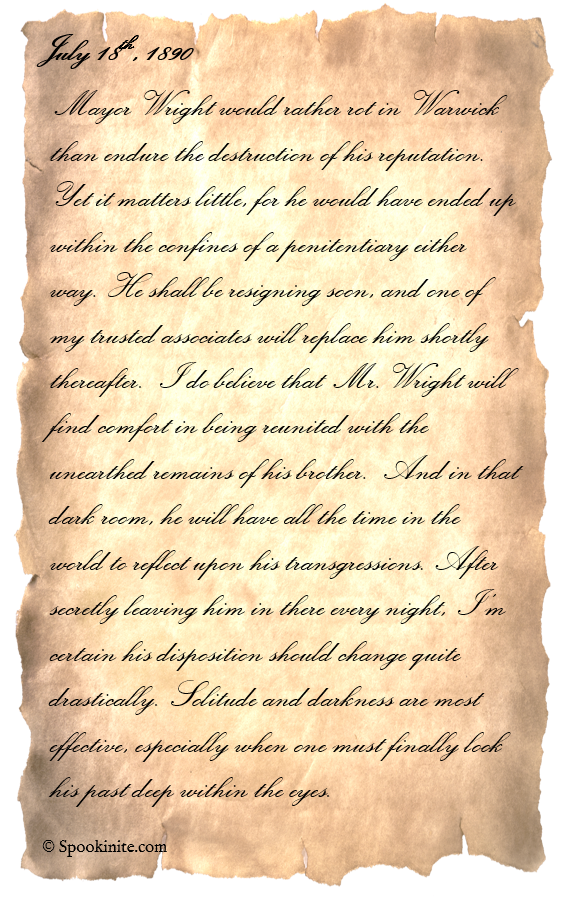 July 18th, 1890
Mayor Wright would rather rot in Warwick
than endure the destruction of his reputation.
Yet it matters little, for he would have ended up
within the confines of a penitentiary either
way. He shall be resigning soon, and one of
my trusted associates will replace him shortly
thereafter. I do believe that Mr. Wright will
find comfort in being reunited with the
unearthed remains of his brother. And in that
dark room, he will have all the time in the
world to reflect upon his transgressions. After
secretly leaving him in there every night, I'm
certain his disposition should change quite
drastically. Solitude and darkness are most
effective, especially when one must finally look
his past deep within the eyes.
© Spookinite.com